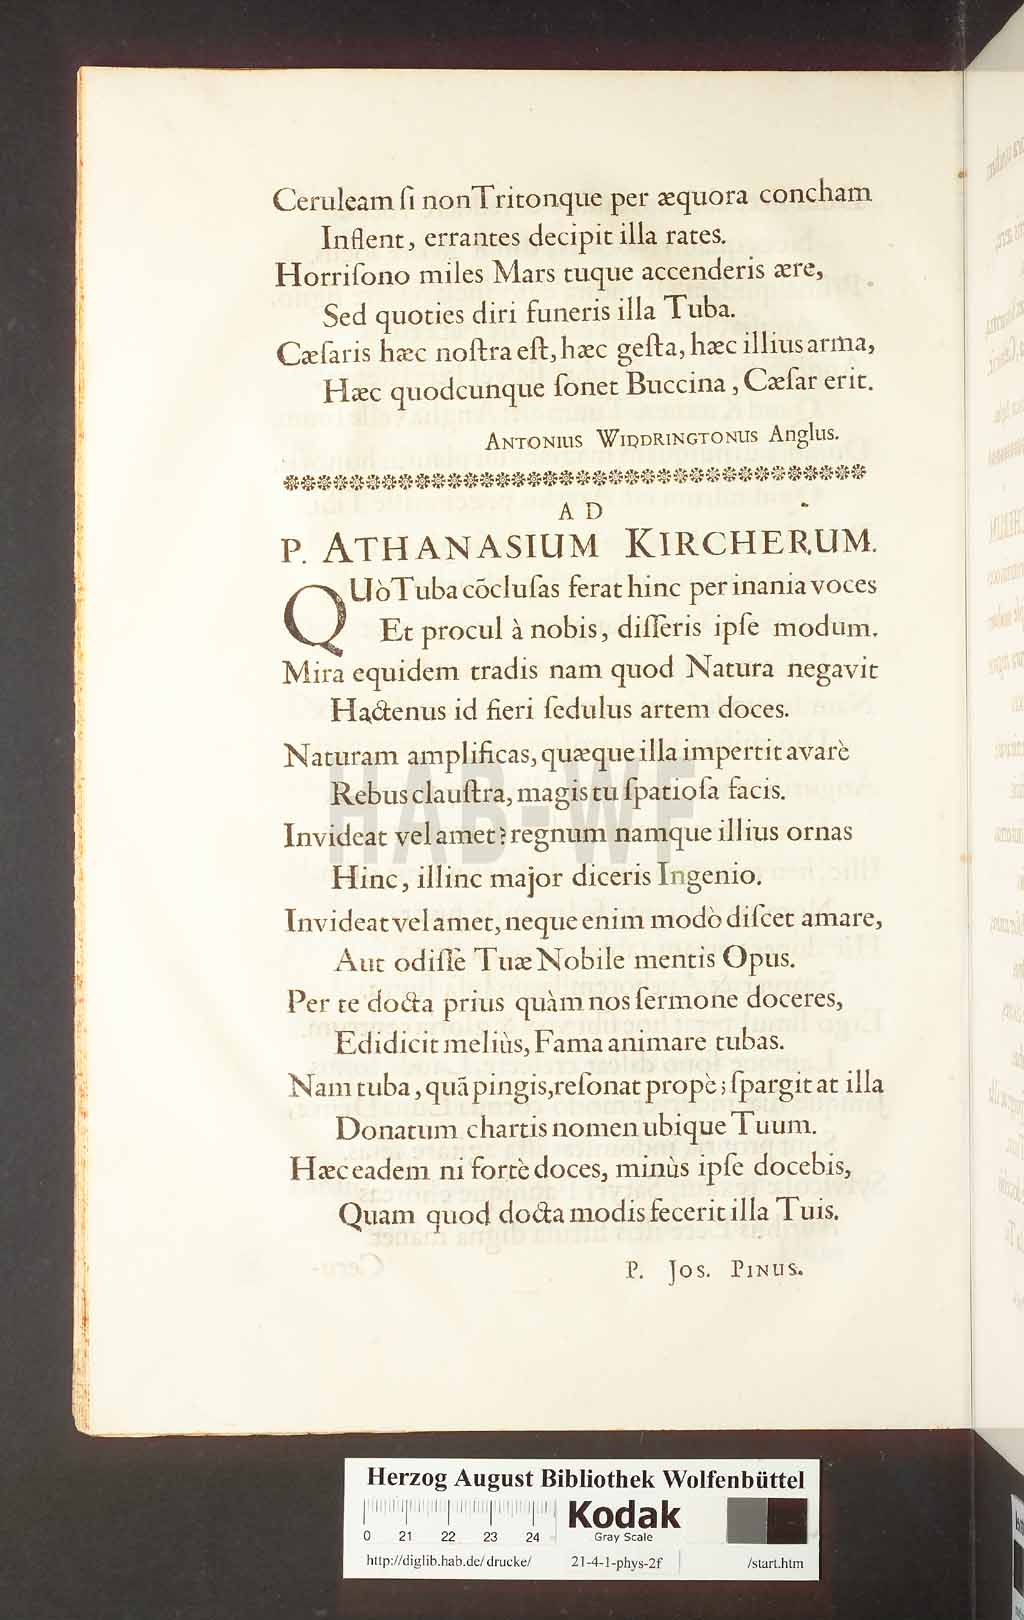 Ceruleam ſi non Tritonque per æquora concham
Inflent, errantes decipit illa rates.
Horriſono miles Mars tuque accenderis ære,
Sed quoties diri funeris illa Tuba.
Cæſaris hæc noſtra eſt, hæc geſta, hæc illius arma,
Hæc quodcunque ſonet Buccina, Cæſar erit.
ANTONIUS WIDDRINGTONUS Anglus.
AD
P. ATHANASIUM KIRCHERUM.
QUò Tuba cōcluſas ferat hinc per inania voces
Et procul à nobis, diſſeris ipſe modum.
Mira equidem tradis nam quod Natura negavit
Hactenus id fieri ſedulus artem doces.
Naturam amplificas, quæque illa impertit avarè
Rebus clauſtra, magis tu ſpatioſa facis.
Invideat vel amet? regnum namque illius ornas
Hinc, illinc major diceris Ingenio.
Invideat vel amet, neque enim modò diſcet amare,
Aut odiſſè Tuæ Nobile mentis Opus.
Per te docta prius quàm nos ſermone doceres,
Edidicit meliùs, Fama animare tubas.
Nam tuba, quā pingis, reſonat propè; ſpargit at illa
Donatum chartis nomen ubique Tuum.
Hæc eadem ni fortè doces, minùs ipſe docebis,
Quam quod docta modis fecerit illa Tuis.
P. JOS. PINUS.
HAB-WF
Herzog August Bibliothek Wolfenbüttel
0 21 22 23 24
Kodak
Gray Scale
http://diglib.hab.de/drucke/ 21-4-1-phys-2f /start.htm